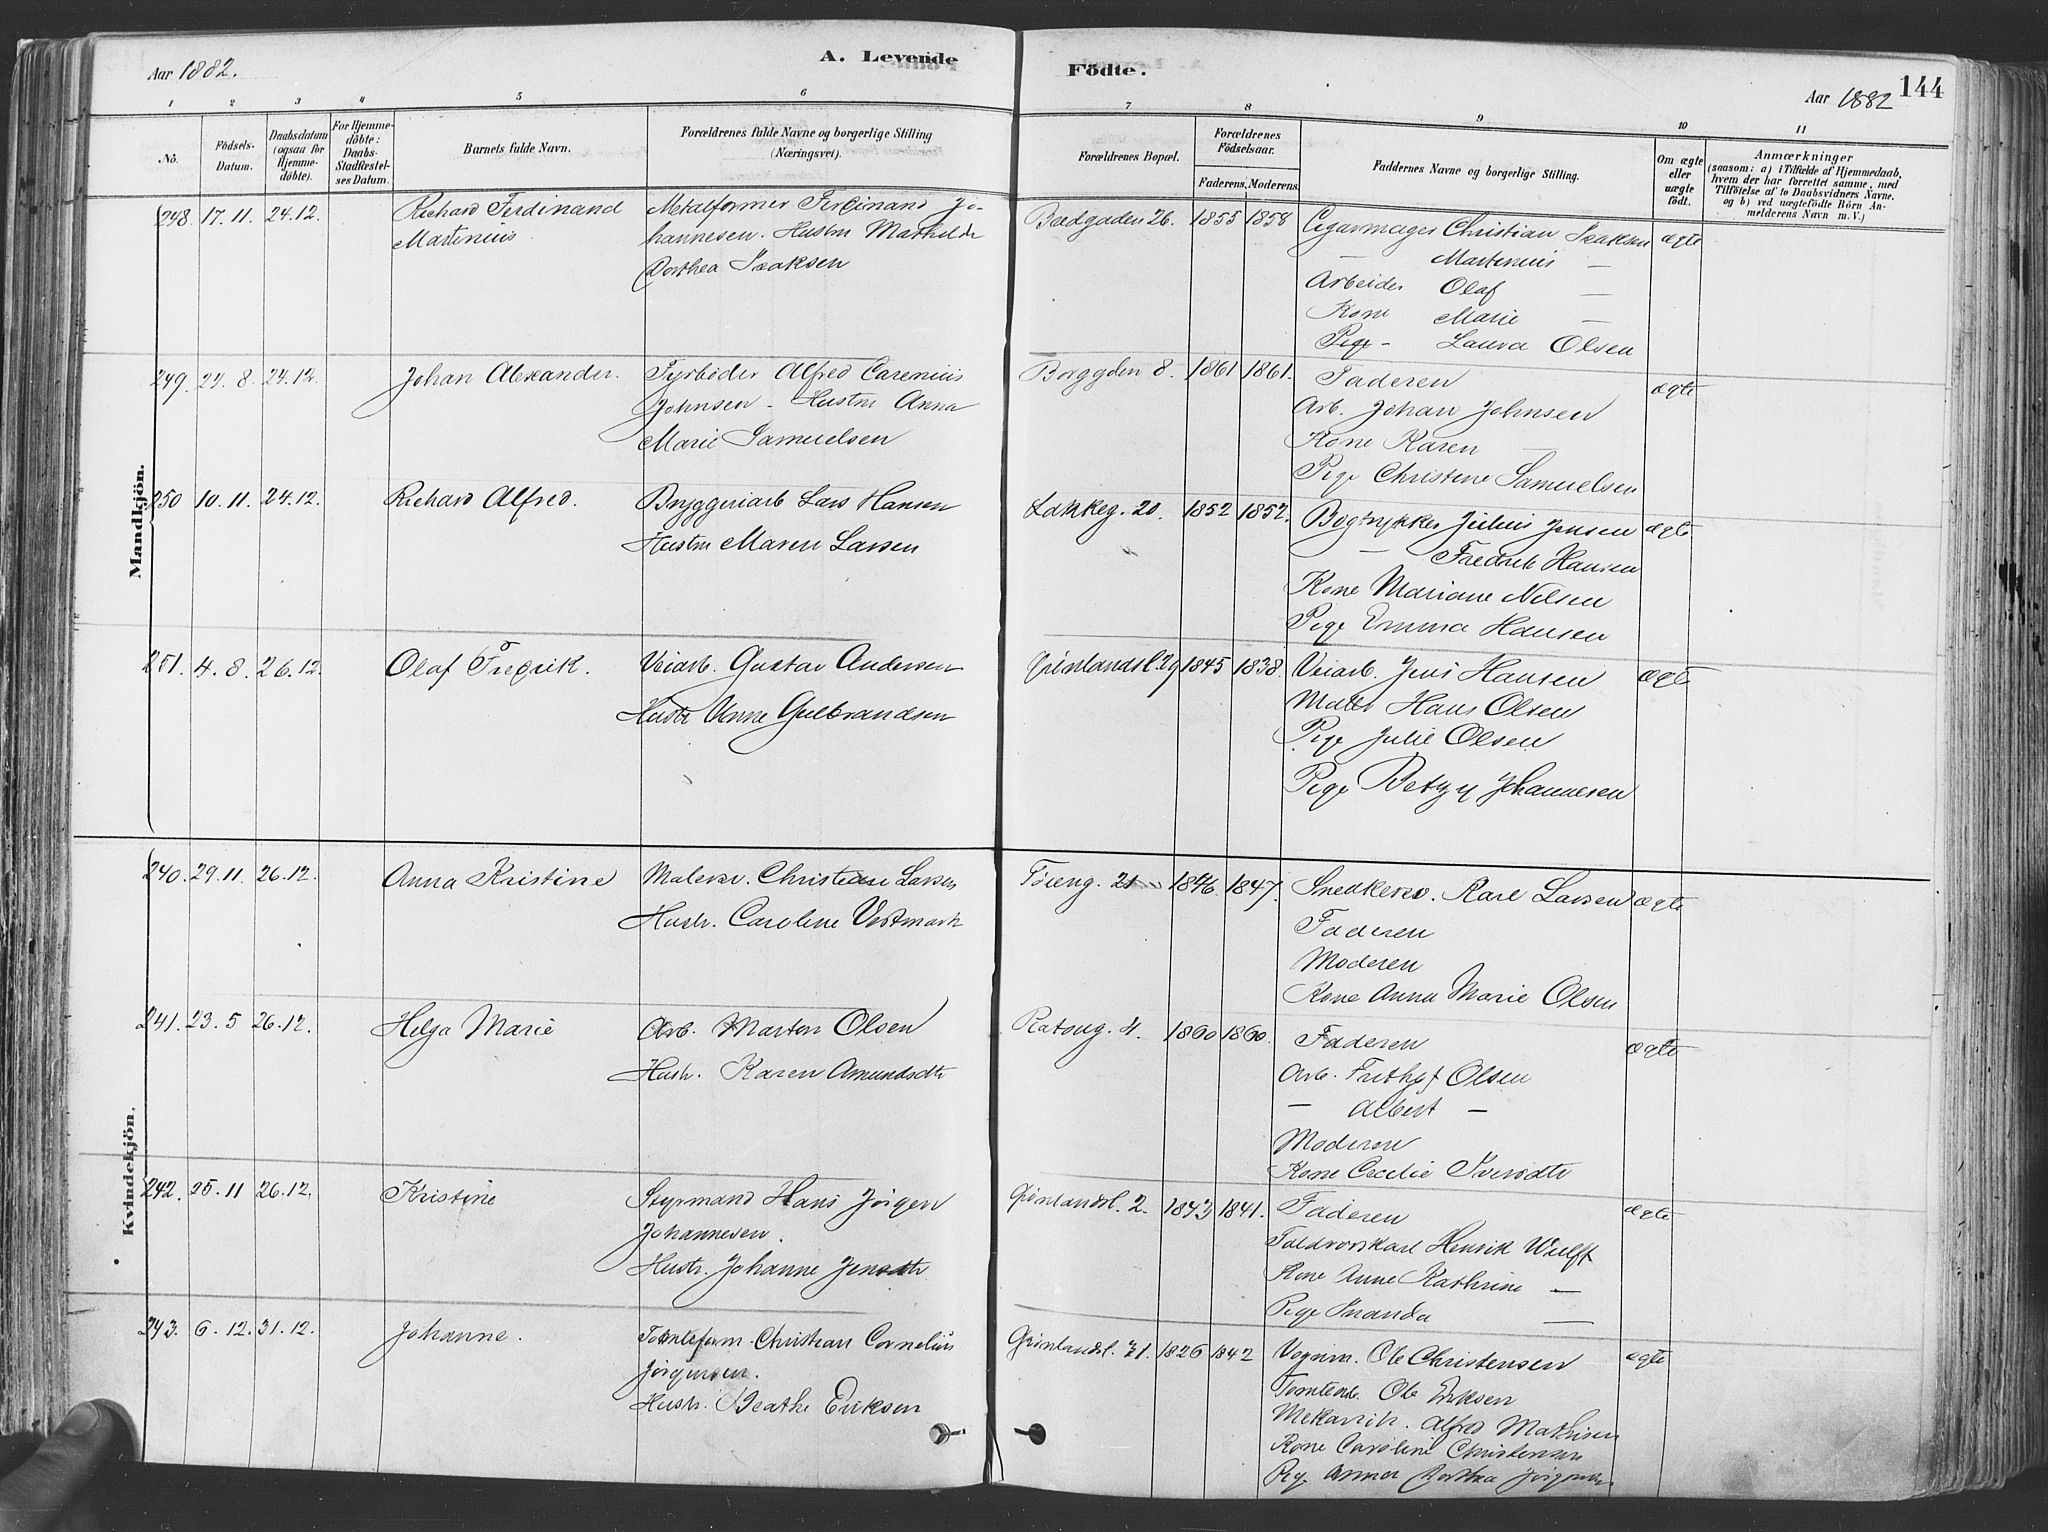 Aar 1882.
A. Levende
Födte.
144
Aar 1882
1 2 3 4 5 6 7 8 9 10 11
No.
Födsels-
Datum.
Daabsdatum
(ogsaa for
Hjemme-
döbte).
For Hjemme-
döbte:
Daabs-
Stadfæstel-
ses Datum.
Barnets fulde Navn.
Forældrenes fulde Navne og borgerlige Stilling
(Næringsvei).
Forældrenes Bopæl.
Forældrenes
Födselsaar.
Faderens. Moderens.
Faddernes Navne og borgerlige Stilling.
Om ægte
eller
uægte
födt.
Anmærkninger
(saasom: a) i Tilfælde af Hjemmedaab,
hvem der har forrettet samme, med
Tilföielse af to Daabsvidners Navne,
og b) ved uægtefödte Börn An-
melderens Navn m. V.)
Mandkjön.
248. 17. 11. 24. 12. Richard Ferdinand
Martinius
Metalformer Ferdinand Jo-
hannesen. Hustru Mathilde
Dorthea Isaksen
Badgaden 26. 1855 1858
Cigarmager Christian Isaksen
— Martinius —
Arbeider Olaf —
Kone Marie —
Pige - Laura Olsen
ægte
249. 27. 8. 24. 12. Johan Alexander.
Fyrbøder Alfred Carenius
Johnsen - Hustru Anna
Marie Samuelsen
Borggden 8. 1861 1861.
Faderen
Arb. Johan Johnsen
Kone Karen —
Pige Christine Samuelsen
ægte
250 10. 11. 24. 12. Richard Alfred.
Bryggeriarb Lars Hansen
Hustru Maren Larsen
Lakkeg. 20. 1852 1852.
Bogtrykker Julius Jensen
— Fredrik Hansen
Kone Mariane Nelsen
Pige Emma Hansen
ægte
251. 4. 8. 26. 12. Olaf Fredrik.
Veiarb. Gustav Andersen
Hustr Anne Gulbrandsen
Grønlandsl. 29 1845 1838.
Veiarb. Jens Hansen
Maler Hans Olsen
Pige Julie Olsen
Pige Betzy Johannesen
ægte
Kvindekjön.
240. 29. 11. 26. 12. Anna Kristine
Malersv. Christian Larsen
Hustr. Caroline Vestmark
Tøieng. 21 1846. 1847.
Snedkersv. Karl Larsen
Faderen
Moderen
Kone Anna Marie Olsen
ægte
241. 23. 5 26. 12. Helga Marie
Arb. Marten Olsen
Hustr. Karen Amundsdtr
Ratong. 4. 1860 1860.
Faderen
Arb. Frithjof Olsen
— Albert —
Moderen
Kone Cecilie Iversdtr
ægte
242. 25. 11 26. 12. Kristine
Styrmand Hans Jörgen
Johannesen.
Hustr. Johanne Jensdtr
Grønlandsl. 2. 1843 1841.
Faderen
Toldvorskarl Henrik Wulff
Kone Anne Kathrine —
Pige Inanda —
ægte
243. 6. 12. 31. 12. Johanne.
Christian Cornelius
Jörgensen.
Hustr. Beathe Eriksen
Grønlandsl. 31. 1826 1842
Vognm. Ole Christensen
Tomtearb. Ole Eriksen
Mekanik. Alfred Mathisen
Kone Caroline Christensen
Pige Anna Dorthea Jörgensen
ægte